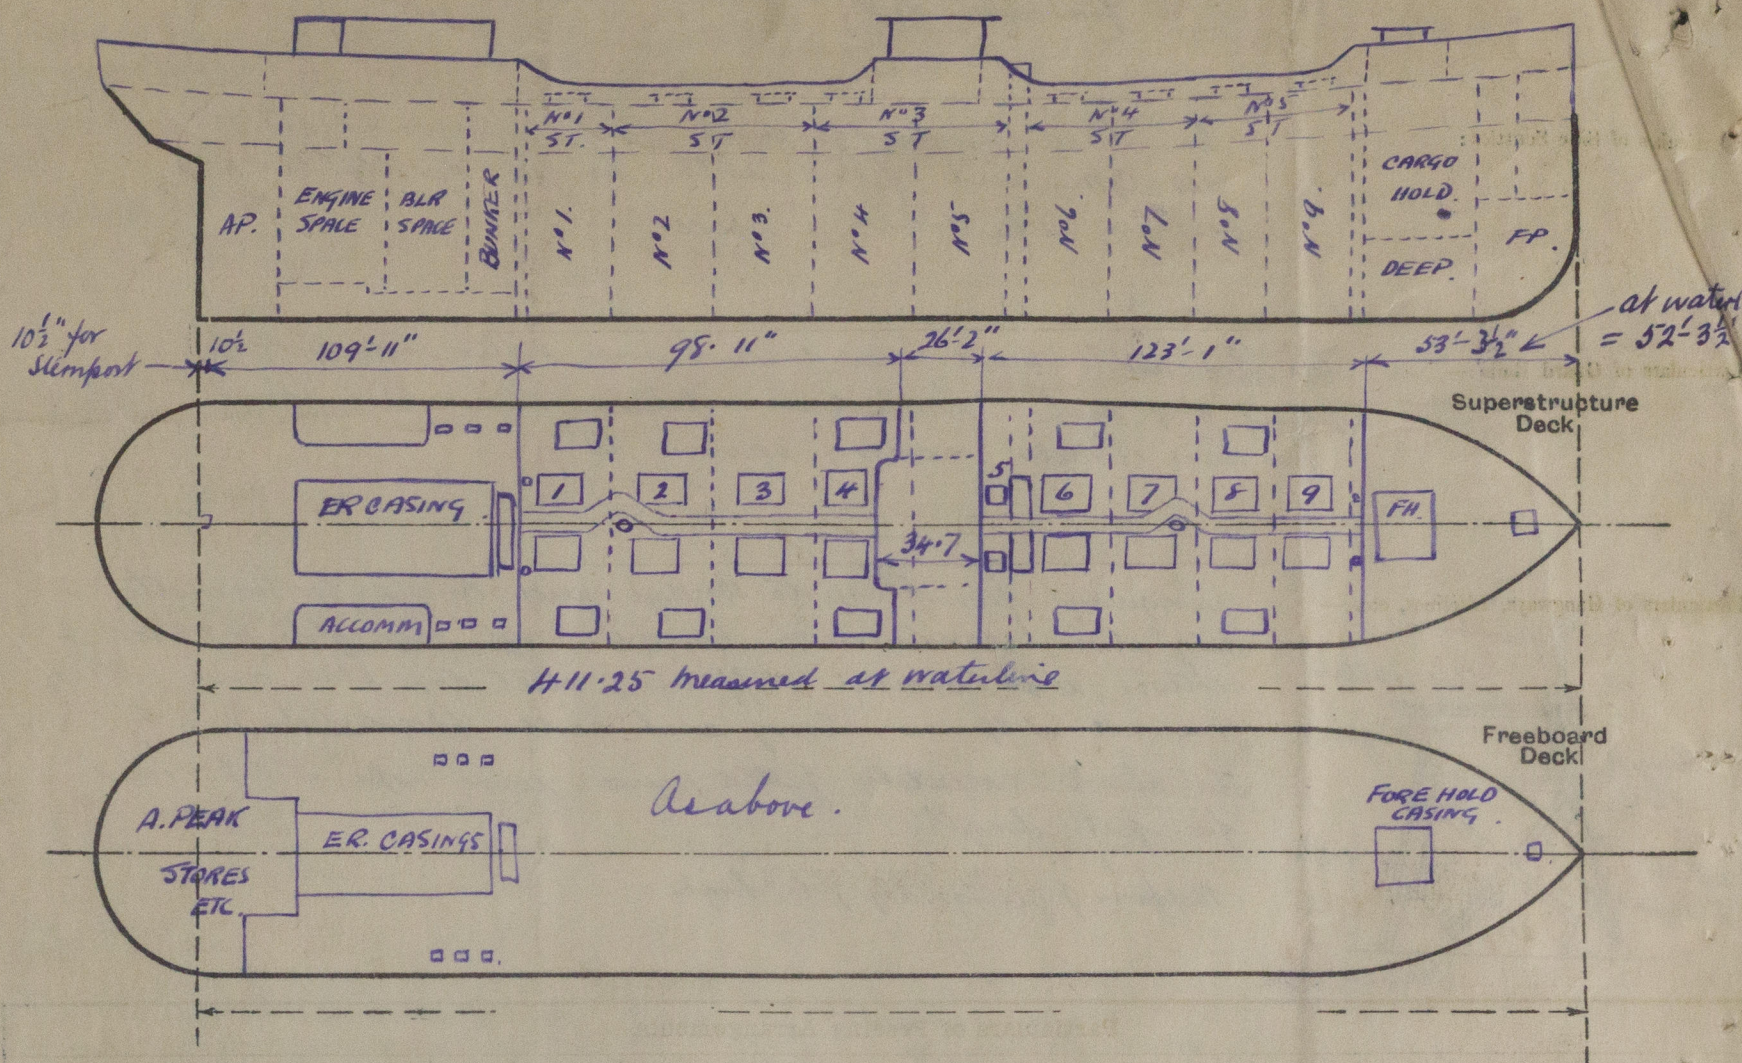 Nº 1
S T.
Nº 2
S T
Nº 3
S T
Nº 4
S T
Nº 5
S T
AP.
ENGINE
SPACE
BLR
SPACE
BUNKER
Nº 1.
Nº 2
Nº 3.
Nº 4
Nº 5
Nº 6.
Nº 7
Nº 8
Nº 9.
CARGO
HOLD.
DEEP.
FP.
10½" for
Sternpost
10½
109'-11"
98.11"
26'-2"
123'-1"
53'-3½"
at waterl
= 52'-3½
Superstructure
Deck
ER CASING
1 2 3 4 5 6 7 8 9
FH
34.7
ACCOMM
411.25 measured at waterline
Freeboard
Deck
A. PEAK
STORES
ETC.
ER. CASINGS
As above.
FORE HOLD
CASING